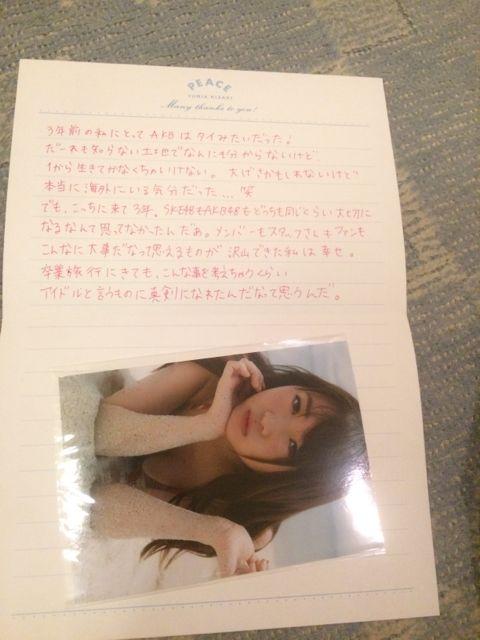 PEACE
YUMIA KIZAKI
Many thanks to you!
3年前の私にとってAKBはタイみたいだった!
だーれも知らない土地でなんにも分からないけど
1から生きてかなくちゃいけない。大げさかもしれないけど
本当に海外にいる気分だった...笑
でも、こっちに来て3年、SKE48もAKB48もどっちも同じくらい大切に
なるなんて思ってなかったんだぁ。メンバーもスタッフさんもファンも
こんなに大事だなって思えるものが沢山できた私は幸せ。
卒業旅行にきても、こんな事を考えちゃうくらい
アイドルと言うものに真剣になれたんだなって思うんだ。